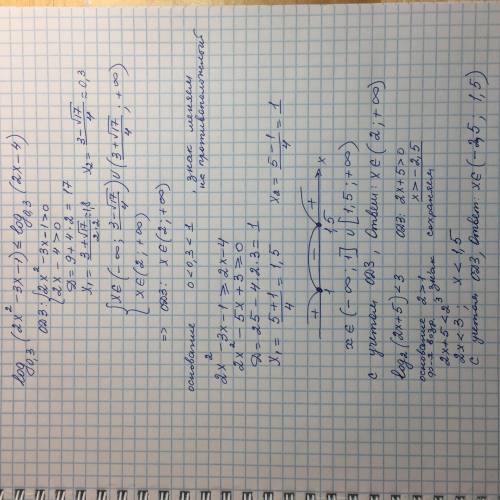 log₀,₃ (2x² - 3x - 1) ≤ log₀,₃ (2x - 4)
ОДЗ: { 2x² - 3x - 1 > 0
2x - 4 > 0
D = 9 + 4·2 = 17
x₁ = (3 + √17)/(2·2) = 1,8 x₂ = (3 - √17)/4 = 0,3
{ x ∈ (-∞; (3 - √17)/4) ∪ ((3 + √17)/4; +∞)
x ∈ (2; +∞)
=> ОДЗ: x ∈ (2; +∞)
основание 0 < 0,3 < 1 знак меняем
на противоположный
2x² - 3x - 1 ≥ 2x - 4
2x² - 5x + 3 ≥ 0
D = 25 - 4·2·3 = 1
x₁ = (5 + 1)/4 = 1,5 x₂ = (5 - 1)/4 = 1
+ - + x
1 1,5
x ∈ (-∞; 1] ∪ [1,5; +∞)
с учетом ОДЗ, Ответ: x ∈ (2; +∞)
log₂ (2x + 5) < 3 ОДЗ: 2x + 5 > 0
x > -2,5
основание 2 > 1
ф-я возр. знак сохраняем
2x + 5 < 2³
2x < 3; x < 1,5
с учетом ОДЗ, Ответ: x ∈ (-2,5; 1,5)